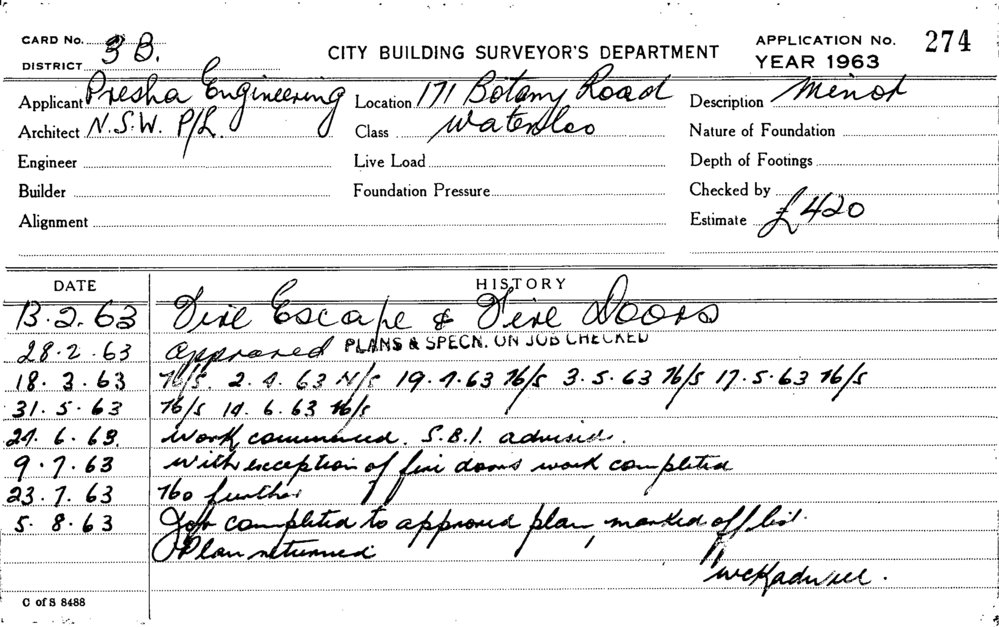 CARD No. 3 B.
DISTRICT
CITY BUILDING SURVEYOR'S DEPARTMENT
APPLICATION No. 274
YEAR 1963
Applicant Presha Engineering Location 171 Botany Road Description Minor
Architect N.S.W. P/L. Class Waterloo Nature of Foundation
Engineer Live Load Depth of Footings
Builder Foundation Pressure Checked by
Alignment Estimate £420
DATE HISTORY
13.2.63 Fire Escape & Fire Doors
28.2.63 approved PLANS & SPECN. ON JOB CHECKED
18.3.63 N/S. 2.4.63 N/S 19.4.63 N/S 3.5.63 N/S 17.5.63 N/S
31.5.63 N/S 14.6.63 N/S
24.6.63. Work commenced. S.B.I. advised.
9.7.63 With exception of fire doors work completed
23.7.63 No further
5.8.63 Job completed to approved plan, marked off list.
Plan returned
C of S 8488